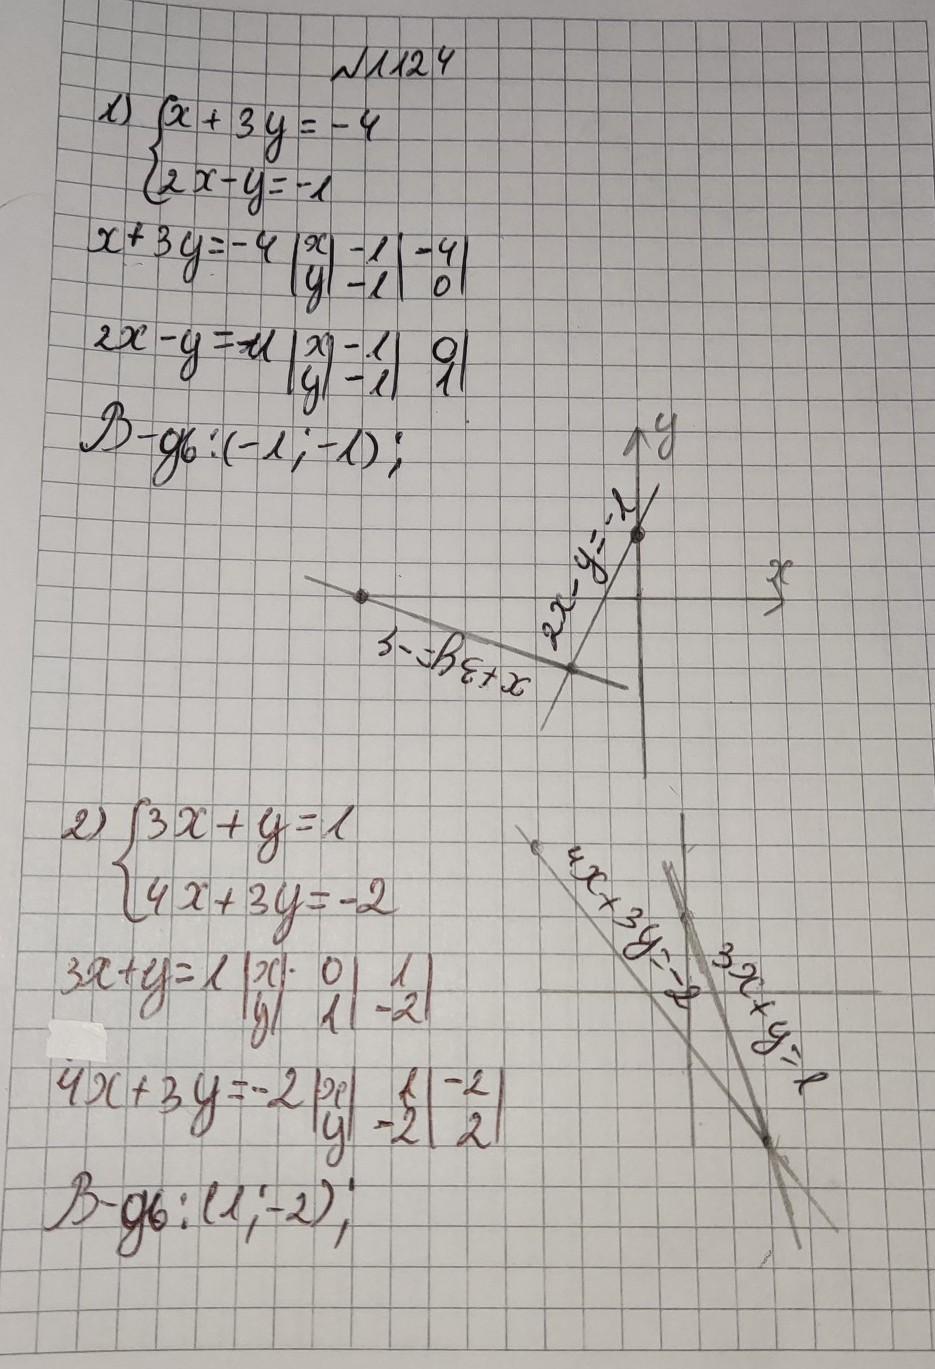 №1124
1) { x + 3y = -4
2x - y = -1
x + 3y = -4 | x | -1 | -4 |
| y | -1 | 0 |
2x - y = -1 | x | -1 | 0 |
| y | -1 | 1 |
В-дь: (-1; -1);
y
x
2x - y = -1
x + 3y = -4
2) { 3x + y = 1
4x + 3y = -2
3x + y = 1 | x | 0 | 1 |
| y | 1 | -2 |
4x + 3y = -2 | x | 1 | -2 |
| y | -2 | 2 |
В-дь: (1; -2);
4x + 3y = -2
3x + y = 1